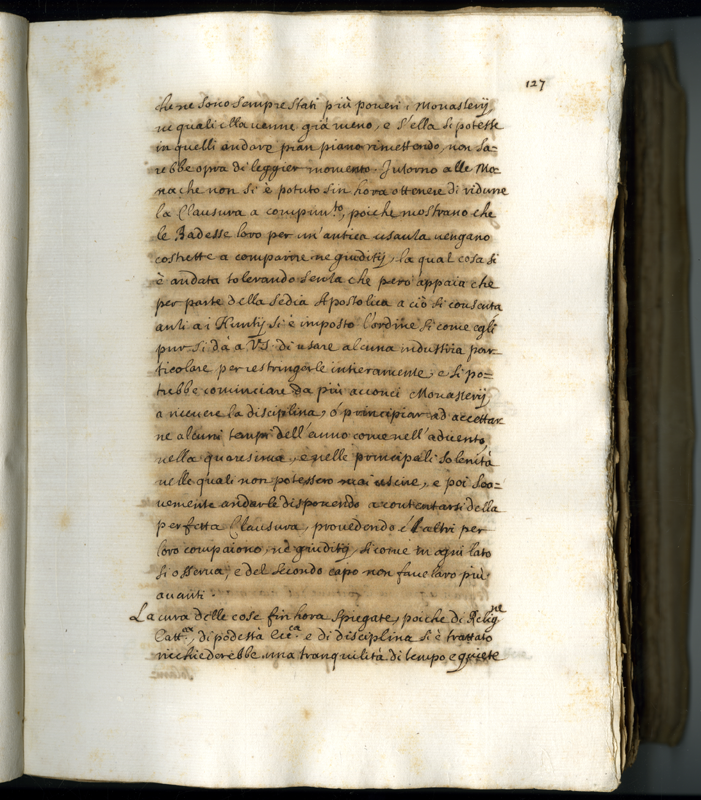 127
che ne sono sempre stati più poueri i Monasterij
ne quali ella uenne già meno, e s'ella si potesse
in quelli andare pian piano rimettendo, non sa=
rebbe opra di leggier momento. Intorno alle Mo=
nache non si è potuto sin hora ottenere di ridurre
la Clausura a compim.to, poiche mostrano che
le Badesse loro per un'antica usanza uengano
costrette a comparire ne giuditij, la qual cosa si
è andata tolerando senza che però appaia che
per parte della Sedia Apostolica a ciò si consenta
anzi a i Nuntij si è imposto l'ordine si come egli
pur si dà a V.S. di usare alcuna industria par=
ticolare per restringerle intieramente, e si po=
trebbe cominciare da più acconci Monasterij
a riceuere la disciplina, ò principiar ad accettar
ne alcuni tempi dell'anno come nell'aduento,
nella quaresima, e nelle principali solenità
nelle quali non potessero mai uscire, e poi soo=
uemente andarle disponendo a contentarsi della
perfetta Clausura, prouedendo ch'altri per
loro compaiono ne giuditij, si come in ogni lato
si osserua, e del secondo capo non fauelaro più
auanti.
La cura delle cose fin hora spiegate, poiche di Relig.ne
Catt.ca, di podestà Ecc.ca e di disciplina si è trattato
ricchiederebbe una tranquilità di tempo, e quiete